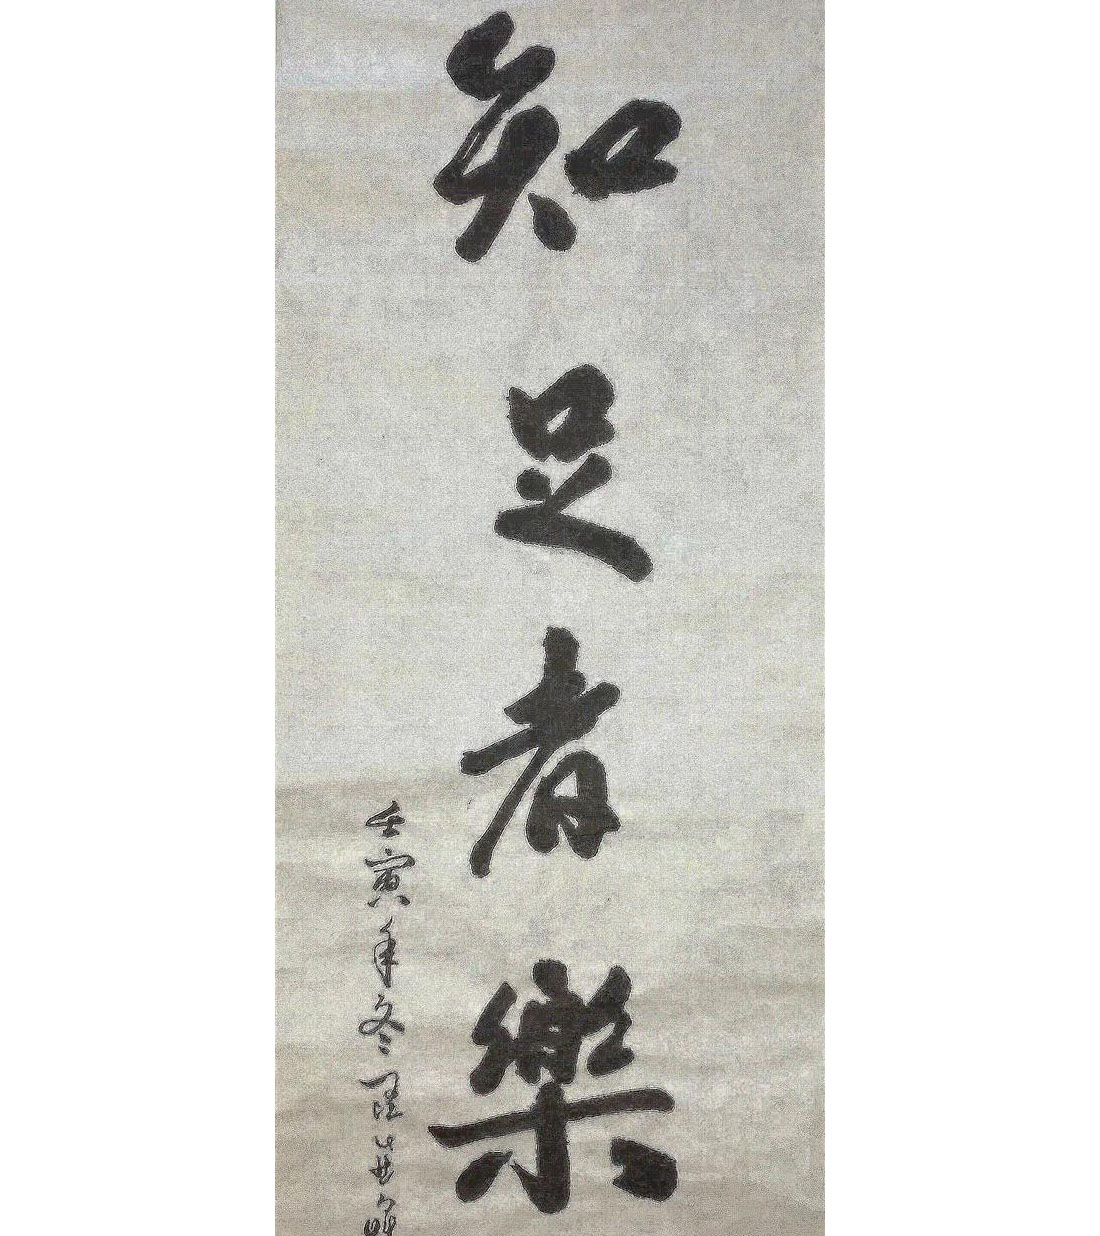 知足者樂
壬寅年冬